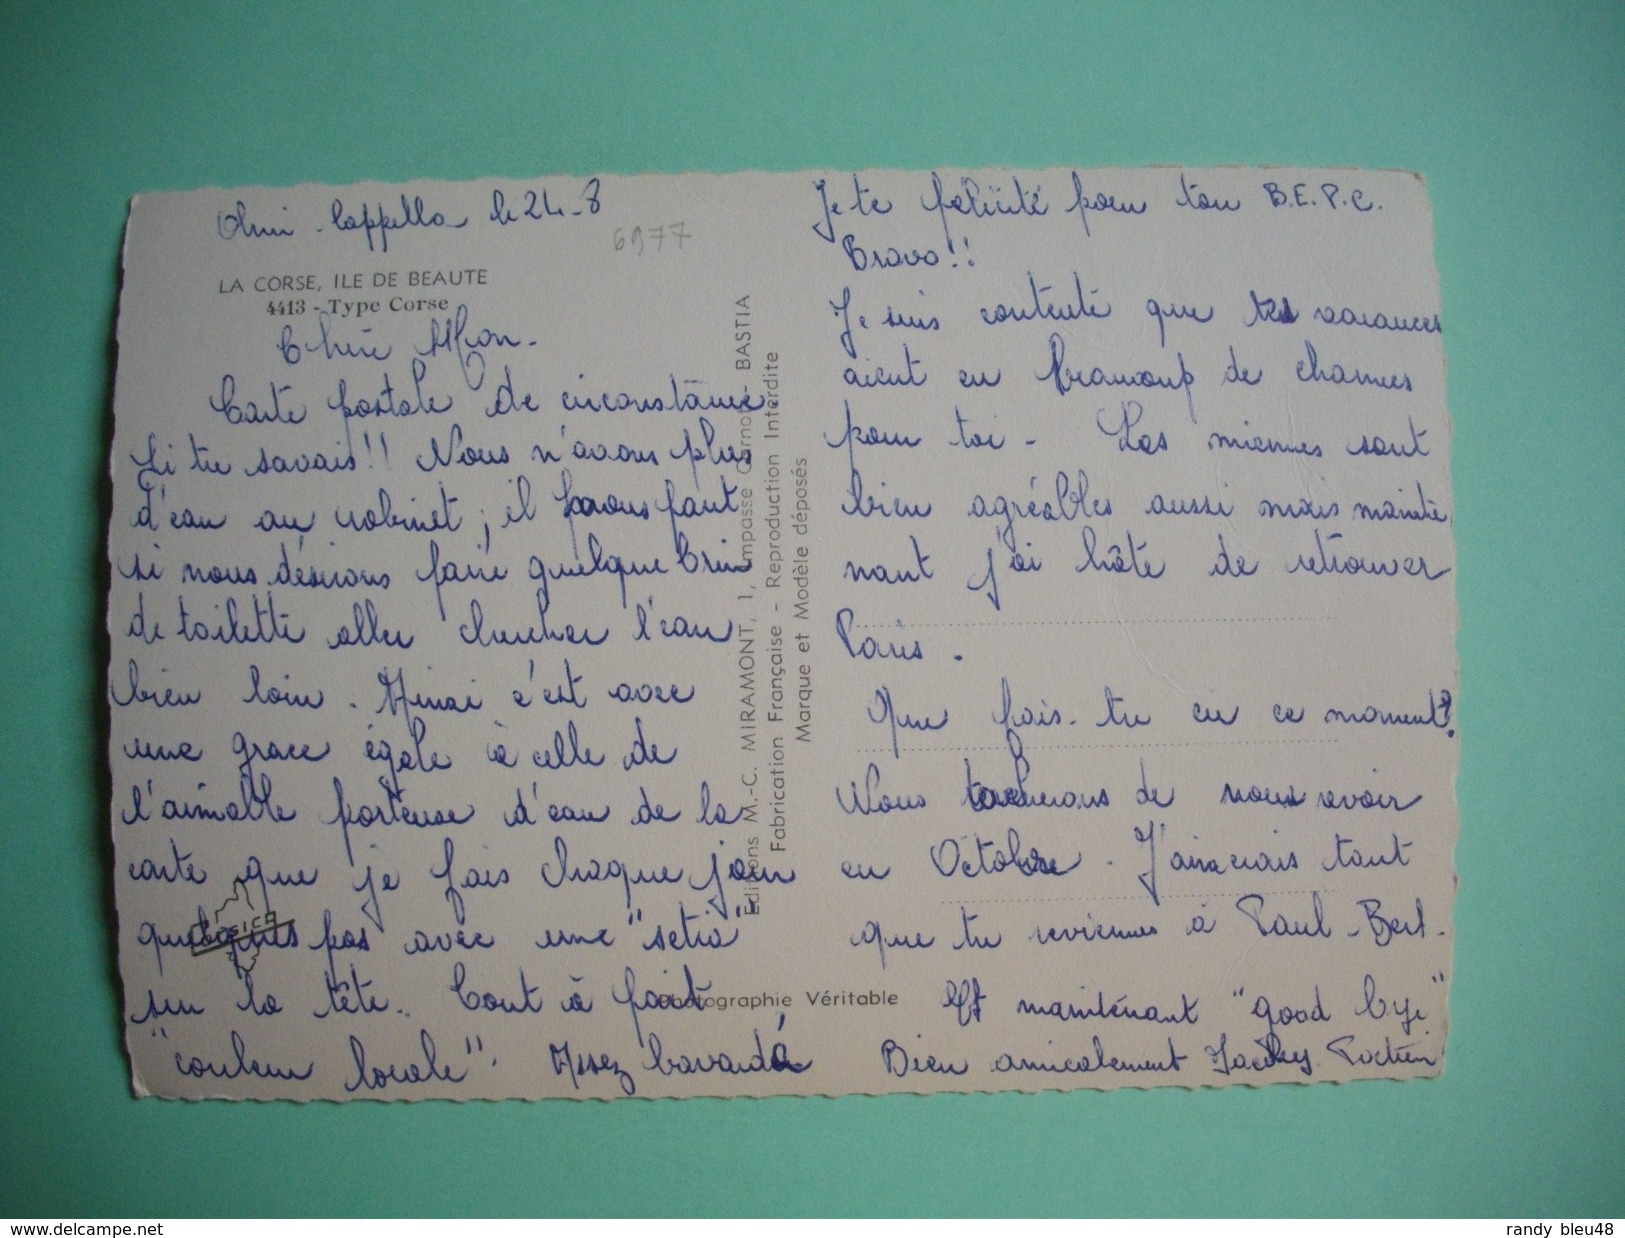 Olmi-Cappella le 24-8
6977
LA CORSE, ILE DE BEAUTE
4413 - Type Corse
Chère
Carte postale de circonstance.
Si tu savais!! Nous n'avons plus
d'eau au robinet; il nous faut
si nous désirons faire quelque brin
de toilette aller chercher l'eau
bien loin. Aussi c'est avec
une grace égale à celle de
l'aimable porteuse d'eau de la
carte que je fais chaque jour
quelques pas avec une "setia"
sur la tête. Tout à fait
"couleur locale". Assez bavardé
CORSICA
Editions M.-C. MIRAMONT, 1, Impasse Carnot - BASTIA
Fabrication Française - Reproduction Interdite
Marque et Modèle déposés
Photographie Véritable
Je te félicite pour ton B.E.P.C.
Bravo!!
Je suis contente que tes vacances
aient eu beaucoup de charmes
pour toi - Les miennes sont
bien agréables aussi mais mainte
nant j'ai hâte de retrouver
Paris.
Que fais-tu en ce moment?
Nous tacherons de nous revoir
en Octobre. J'aimerais tant
que tu reviennes à Paul-Bert.
Et maintenant "good bye"
Bien amicalement Jackey
www.delcampe.net
randy_bleu48